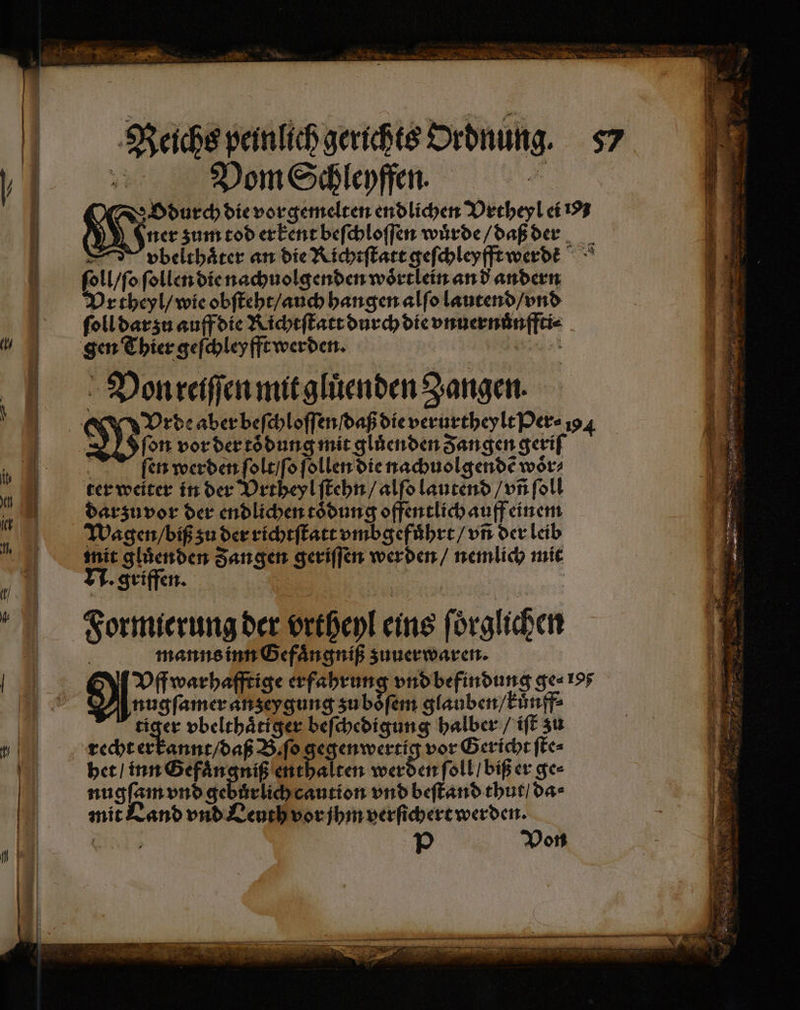 Reichs peinlich gerichts Ordnung. 57
Vom Schleyffen.
WOdurch die vorgemelten endlichen Vrtheyl ei 193
ner zum tod erkent beſchloſſen wuͤrde / daß der
vbelthaͤter an die Richtſtatt geſchleyfft werdẽ
ſoll / ſo ſollen die nachuolgenden woͤrtlein an d andern
Vrtheyl / wie obſteht / auch hangen alſo lautend / vnd
ſoll darzu auff die Richtſtatt durch die vnuernuͤnffti⸗
gen Thier geſchleyfft werden.
Von reiſſen mit gluͤenden Zangen.
WVrde aber beſchloſſen / daß die verurtheylt Per⸗ 194
ſon vor der toͤdung mit gluͤenden Zangen geriſ
ſen werden ſolt / ſo ſollen die nachuolgendẽ woͤr⸗
ter weiter in der Vrtheyl ſtehn / alſo lautend / vñ ſoll
darzu vor der endlichen toͤdung offentlich auff einem
Wagen / biß zu der richtſtatt vmbgefuͤhrt / vñ der leib
mit gluͤenden Zangen geriſſen werden / nemlich mit
N. griffen.
Formierung der vrtheyl eins ſoͤrglichen
manns inn Gefaͤngniß zuuerwaren.
AVff warhafftige erfahrung vnd befindung ge⸗ 195
nugſamer anzeygung zu boͤſem glauben / kuͤnff⸗
tiger vbelthaͤtiger beſchedigung halber / iſt zu
recht erkannt / daß B. ſo gegenwertig vor Gericht ſte⸗
het / inn Gefaͤngniß enthalten werden ſoll / biß er ge⸗
nugſam vnd gebuͤrlich caution vnd beſtand thut / da⸗
mit Land vnd Leuth vor jhm verſichert werden.
P Von